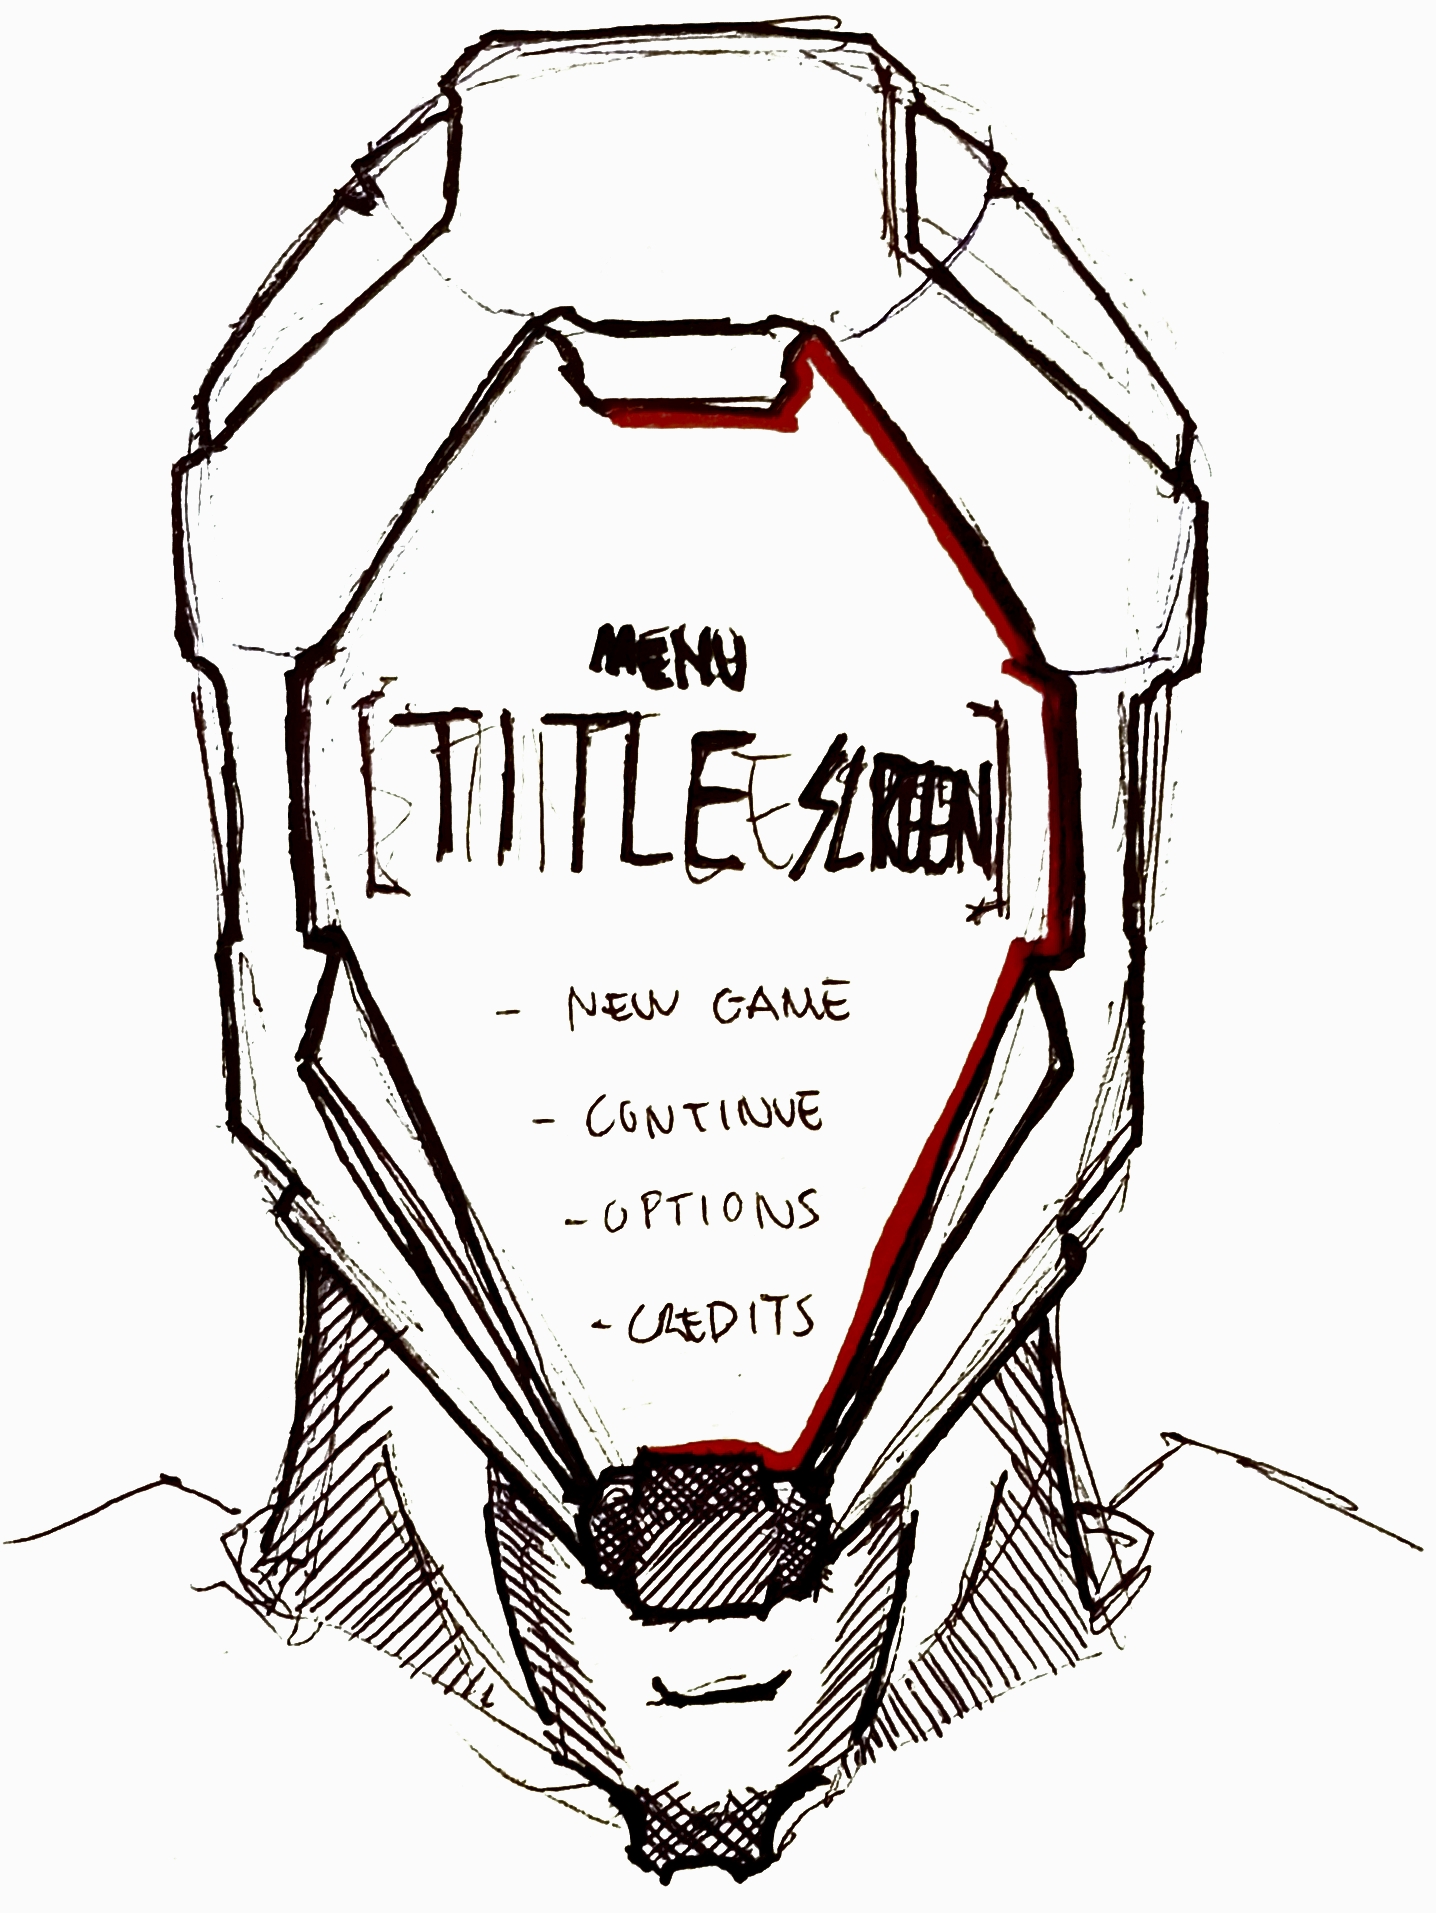 MENU
[TITLE SCREEN]
- NEW GAME
- CONTINUE
- OPTIONS
- CREDITS